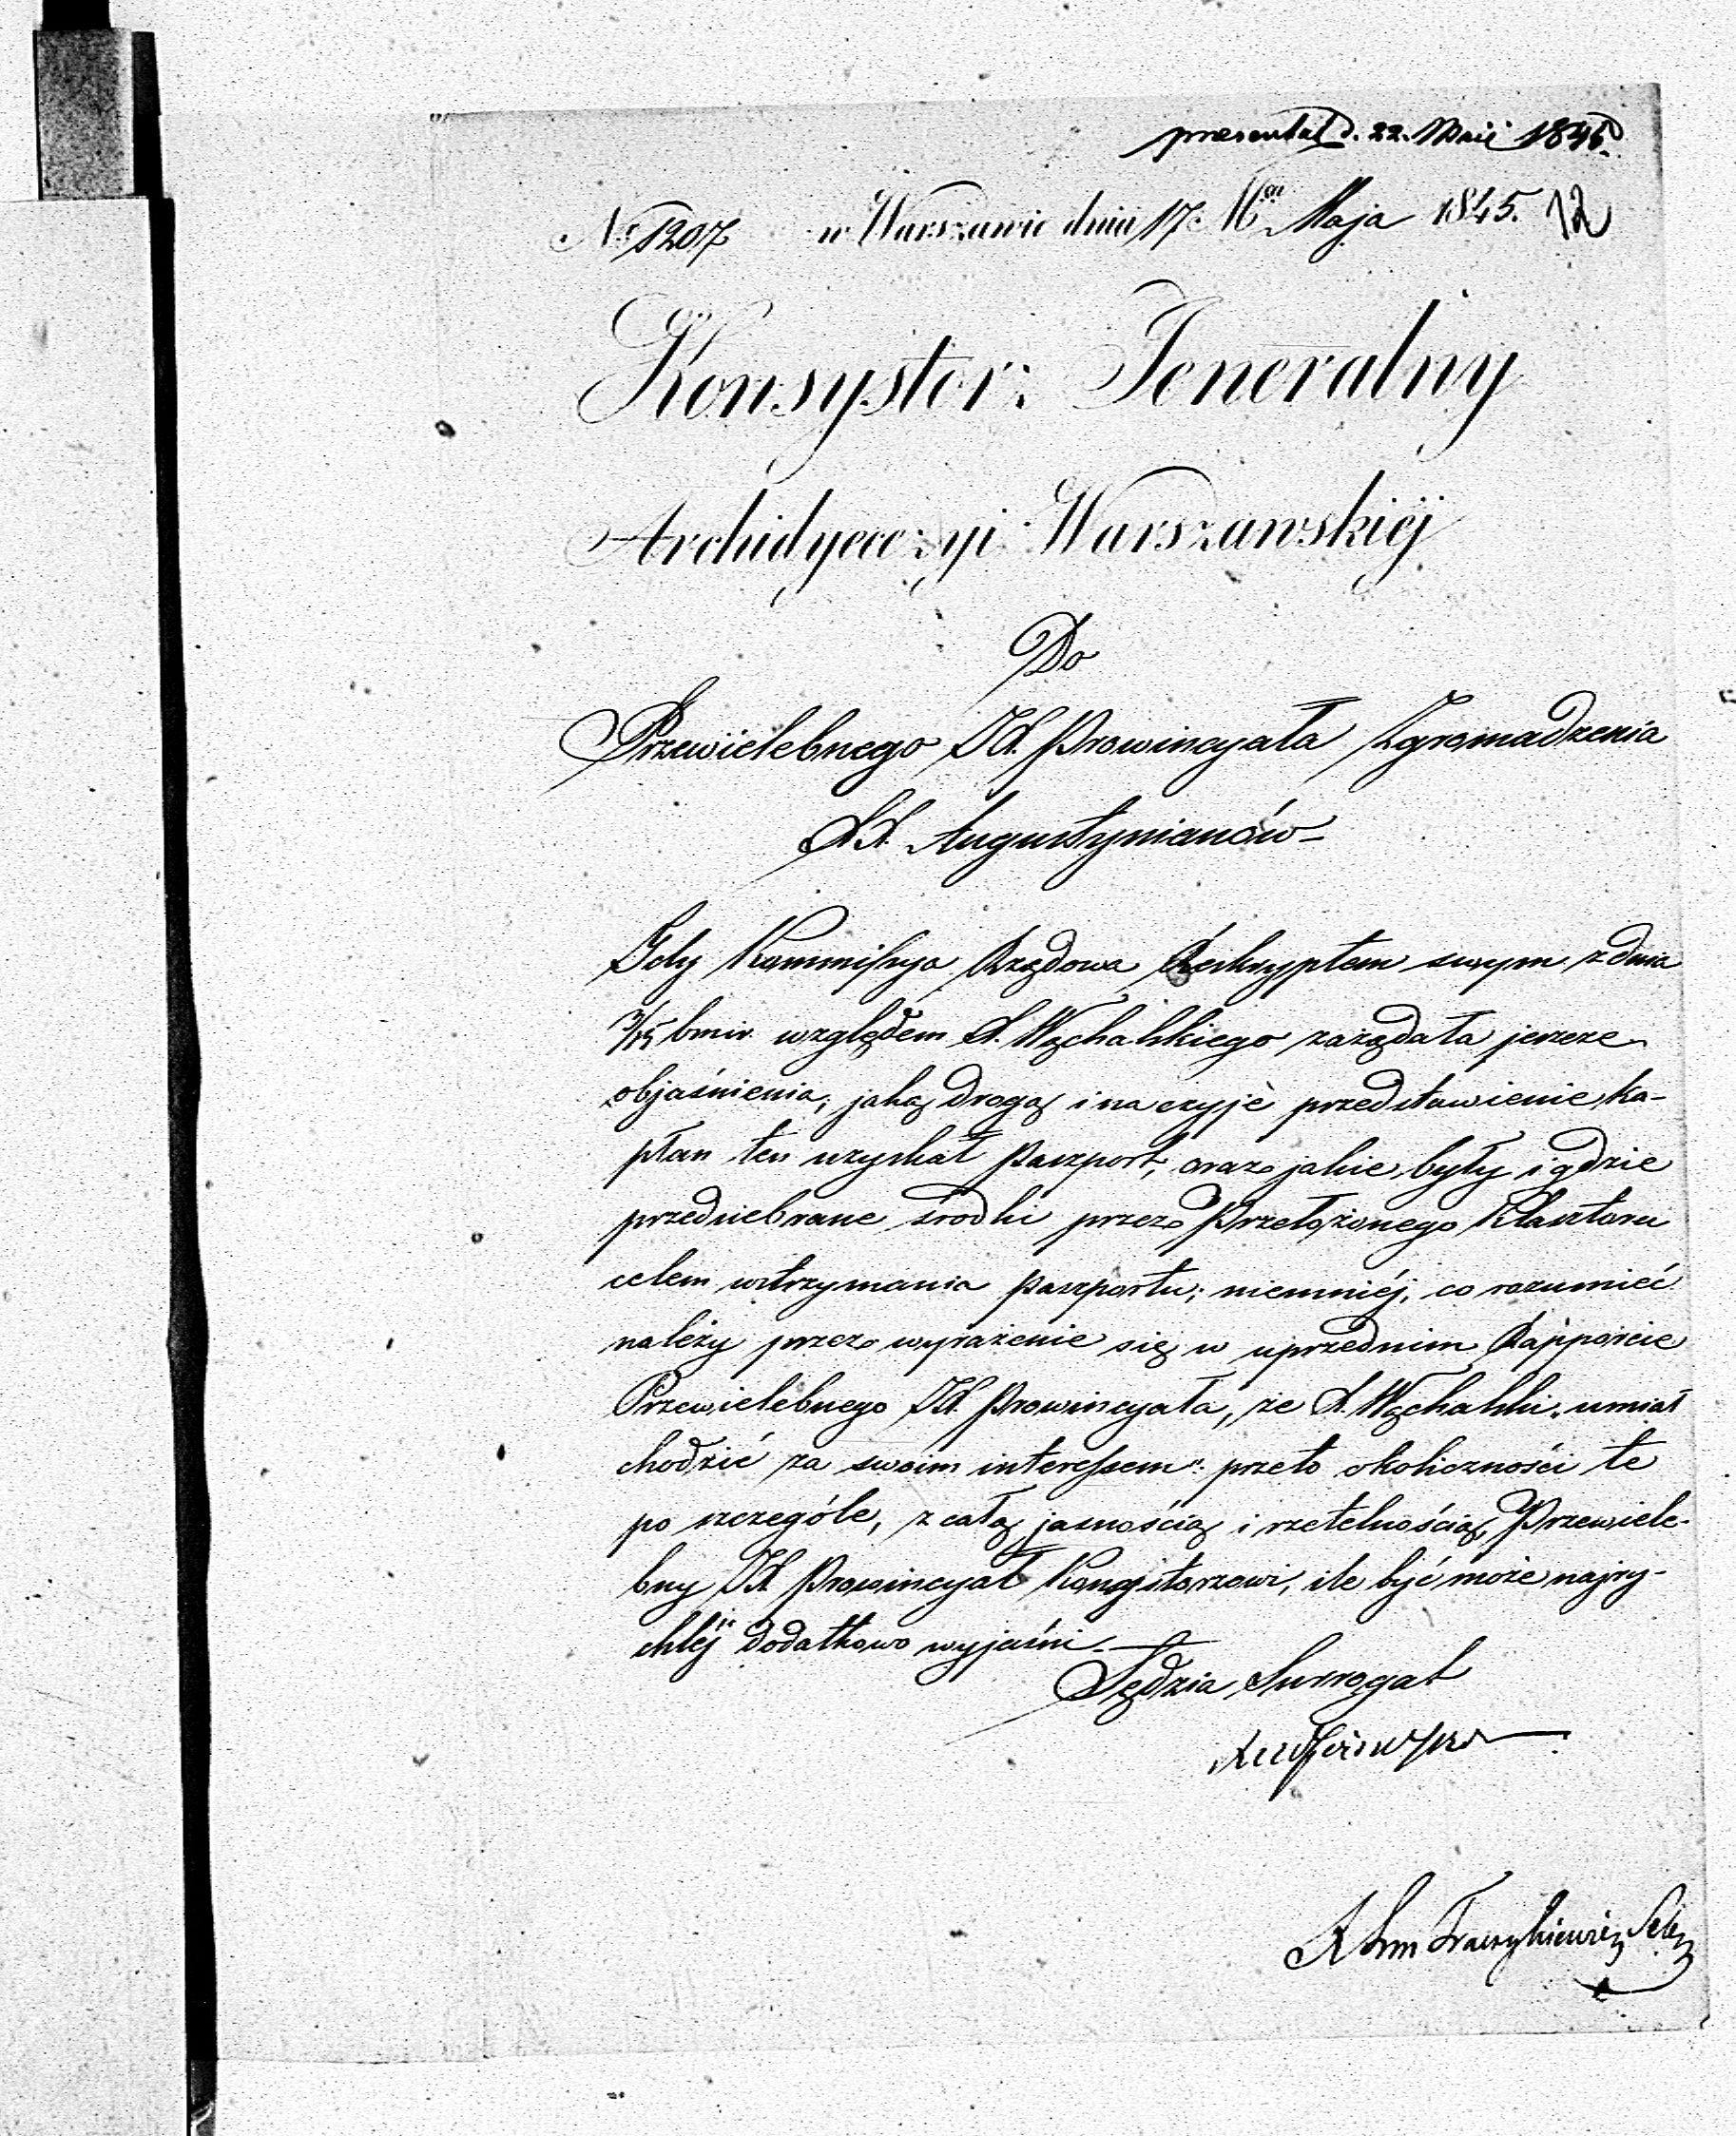 præsentat d. 22. Maii 1845.
Nr. 1207 w Warszawie dnia 17. Mca Maja 1845. 12
Konsystor: Jeneralny
Archidyecezyi Warszawskiéj
Do
Przewielebnego JX. Prowincyała Zgromadzenia
XX. Augustynianów
Gdy Kommissya Rządowa Reskryptem swym z dnia
3/15 bmir. względem X. Wąchalskiego zażądała jeszcze
objaśnienia, jaką drogą i na czyje przedstawienie, ka-
płan ten uzyskał paszport, oraz jakie były i gdzie
przedsiebrane środki przez Przełożonego Klasztoru
celem wstrzymania paszportu; niemniéj, co rozumieć
należy przez wyrażenie się w uprzednim Rapporcie
Przewielebnego JX. Prowincyała, że X. Wąchalski „umiał
chodzić za swoim interessem": przeto okoliczności te
po szczególe, z całą jasnością i rzetelnością, Przewiele-
bny JX Prowincyał Konsystorzowi, ile być może najry-
chléj dodatkowo wyjaśni.
Sędzia Surrogat